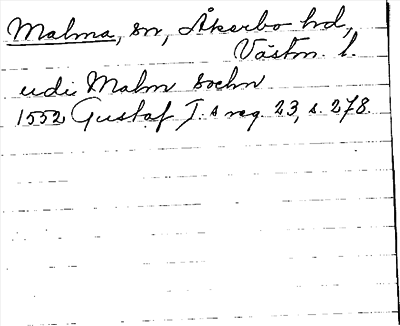 Malma, sn, Åkerbo hd,
Västm. l.
udi Malm sochn
1552 Gustaf I:s reg. 23, s. 278.